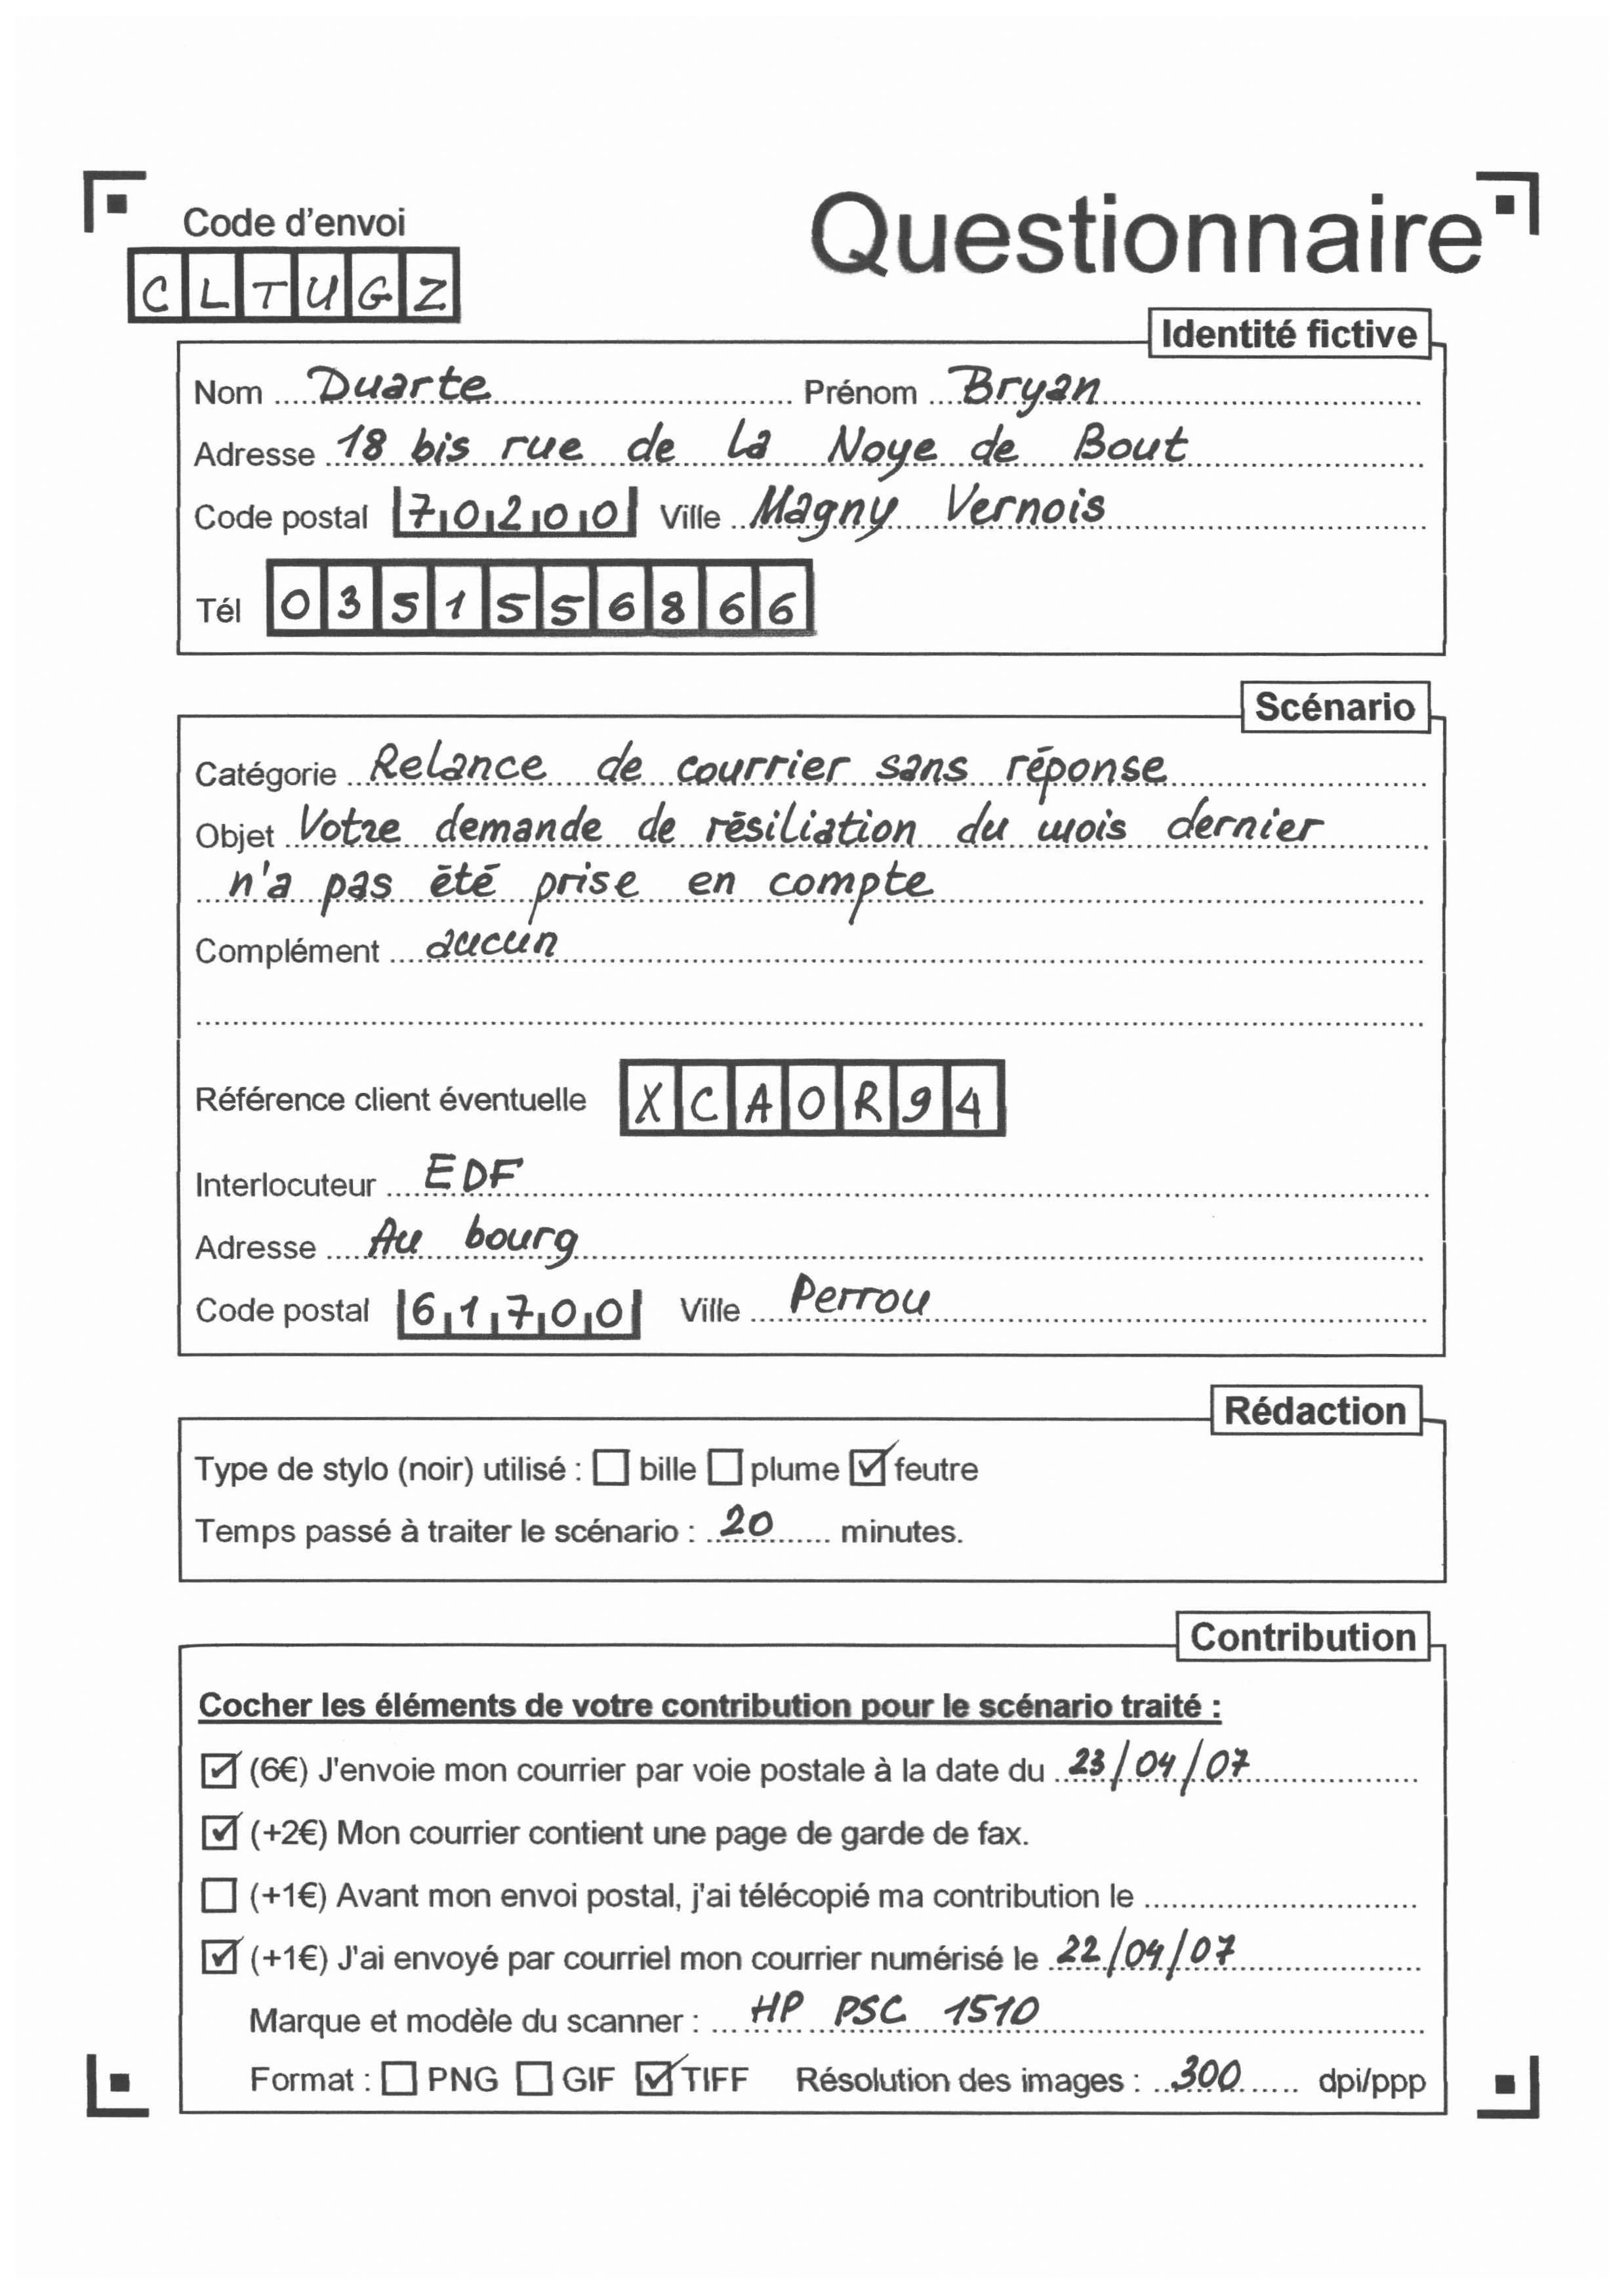 Code d'envoi
Questionnaire
CLTUGZ
Identité fictive
Nom Duarte Prénom Bryan
Adresse 18 bis rue de la Noye de Bout
Code postal 70200 Ville Magny Vernois
Tél 0351556866
Scénario
Catégorie Relance de courrier sans réponse
Objet Votre demande de résiliation du mois dernier
n'a pas été prise en compte
Complément aucun
Référence client éventuelle XCAOR94
Interlocuteur EDF
Adresse Au bourg
Code postal 61700 Ville Perrou
Rédaction
Type de stylo (noir) utilisé : ☐ bille ☐ plume ☑ feutre
Temps passé à traiter le scénario : 20 minutes.
Contribution
Cocher les éléments de votre contribution pour le scénario traité :
☑ (6€) J'envoie mon courrier par voie postale à la date du 23/04/07
☑ (+2€) Mon courrier contient une page de garde de fax.
☐ (+1€) Avant mon envoi postal, j'ai télécopié ma contribution le
☑ (+1€) J'ai envoyé par courriel mon courrier numérisé le 22/04/07
Marque et modèle du scanner : HP PSC 1510
Format : ☐ PNG ☐ GIF ☑ TIFF Résolution des images : 300 dpi/ppp